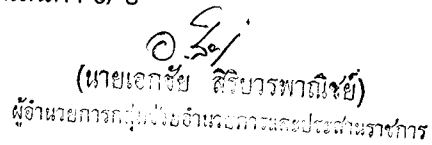 (นายเอกชัย สิริบวรพาณิชย์)
ผู้อำนวยการกลุ่มช่วยอำนวยการและประสานราชการ